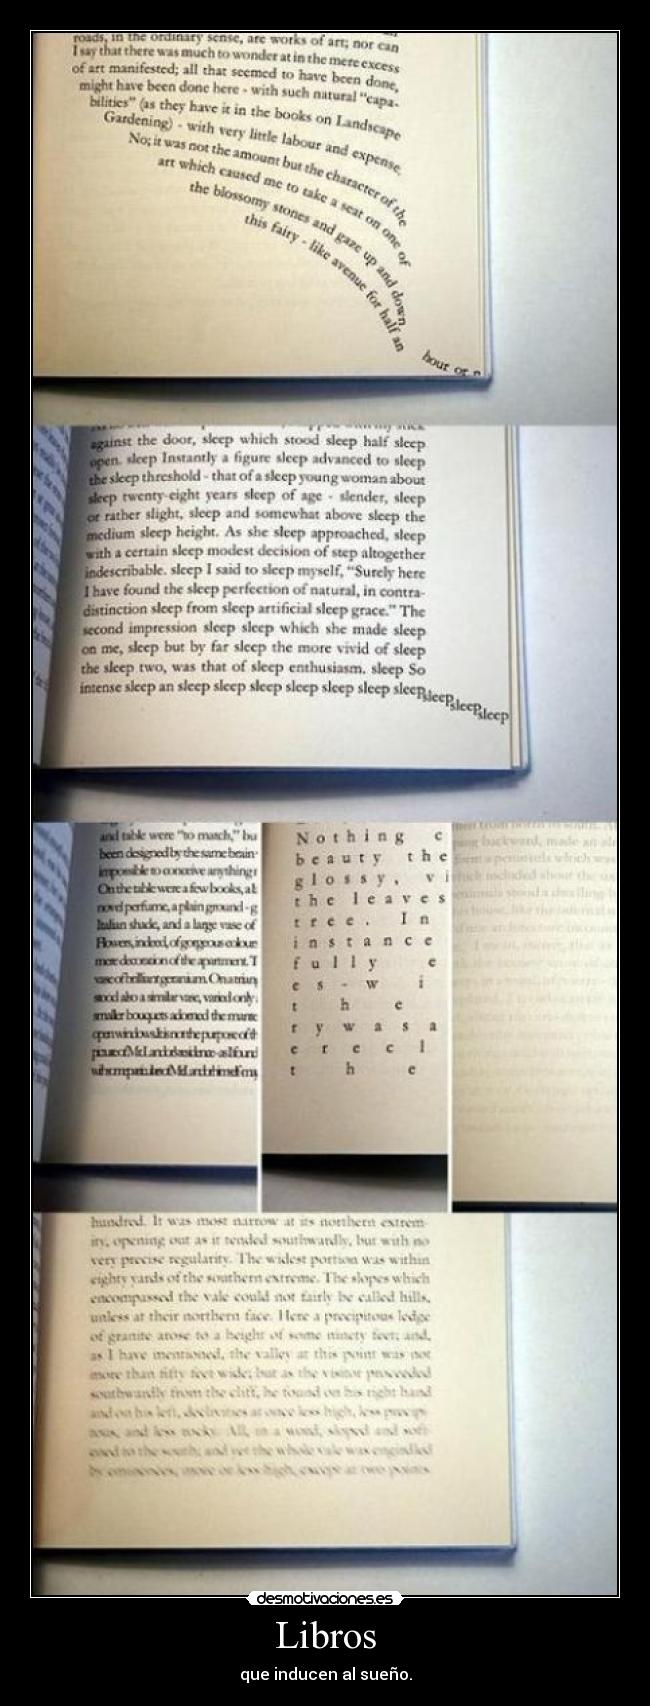 roads, in the ordinary sense, are works of art; nor can
I say that there was much to wonder at in the mere excess
of art manifested; all that seemed to have been done,
might have been done here - with such natural "capa-
bilities" (as they have it in the books on Landscape
Gardening) - with very little labour and expense.
No; it was not the amount but the character of the
art which caused me to take a seat on one of
the blossomy stones and gaze up and down
this fairy - like avenue for half an
hour or
against the door, sleep which stood sleep half sleep
open. sleep Instantly a figure sleep advanced to sleep
the sleep threshold - that of a sleep young woman about
sleep twenty-eight years sleep of age - slender, sleep
or rather slight, sleep and somewhat above sleep the
medium sleep height. As she sleep approached, sleep
with a certain sleep modest decision of step altogether
indescribable. sleep I said to sleep myself, "Surely here
I have found the sleep perfection of natural, in contra-
distinction sleep from sleep artificial sleep grace." The
second impression sleep sleep which she made sleep
on me, sleep but by far sleep the more vivid of sleep
the sleep two, was that of sleep enthusiasm. sleep So
intense sleep an sleep sleep sleep sleep sleep sleep sleep sleep sleep sleep
and table were "to match," bu
been designed by the same brain
impossible to conceive anything
On the table were a few books, a
novel perfume, a plain ground - g
Italian shade, and a large vase of
Flowers, indeed, of gorgeous colour
more decoration of the apartment. T
vase of brilliant geranium. On a trian
stood also a similar vase, varied only
smaller bouquets adorned the mante
open windows. It is not the purpose of th
Nothing c
beauty the
glossy, vi
the leaves
tree. In
instance
fully e
es-wi
the
rywasa
erecl
the
hundred. It was most narrow at its northern extrem-
ity, opening out as it tended southwardly, but with no
very precise regularity. The widest portion was within
eighty yards of the southern extreme. The slopes which
encompassed the vale could not fairly be called hills,
unless at their northern face. Here a precipitous ledge
of granite arose to a height of some ninety feet; and,
as I have mentioned, the valley at this point was not
more than fifty feet wide; but as the visitor proceeded
southwardly from the cliff, he found on his right hand
and on his left, declivities at once less high, less precipi-
tous, and less rocky. All, in a word, sloped and soft-
ened to the south; and yet the whole vale was engirdled
by eminences, more or less high, except at two points.
desmotivaciones.es
Libros
que inducen al sueño.